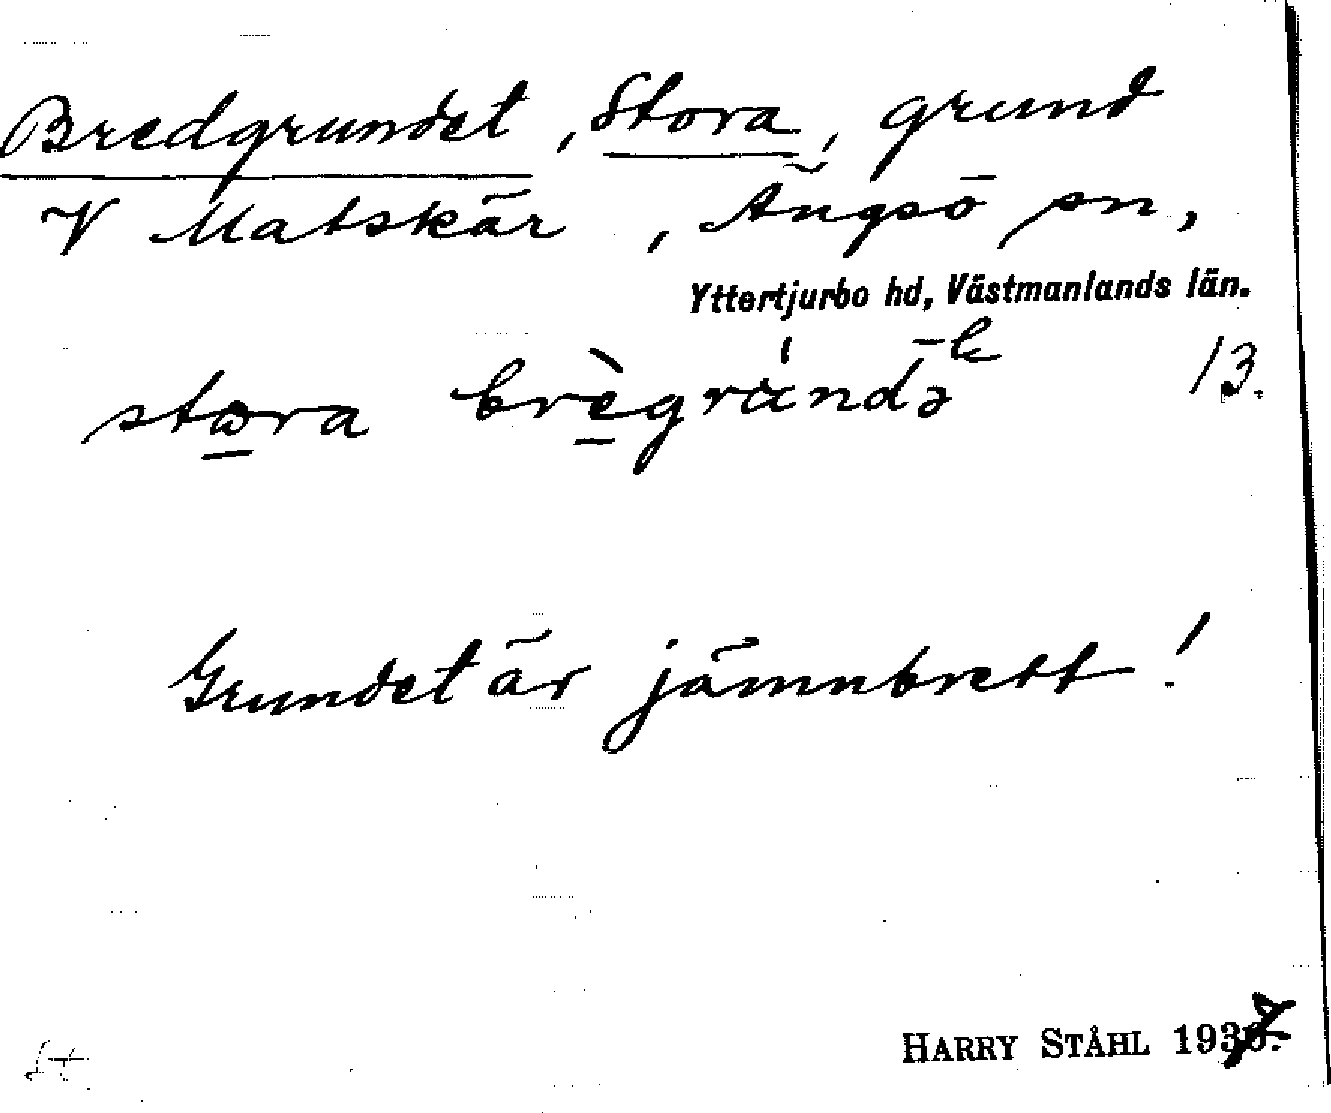 Bredgrundet, Stora, grund
V Matskär, Ängsö sn,
Yttertjurbo hd, Västmanlands län.
stora brègrúndə -ɷ 13.
Grundet är jämnbrett!
HARRY STÅHL 1937.